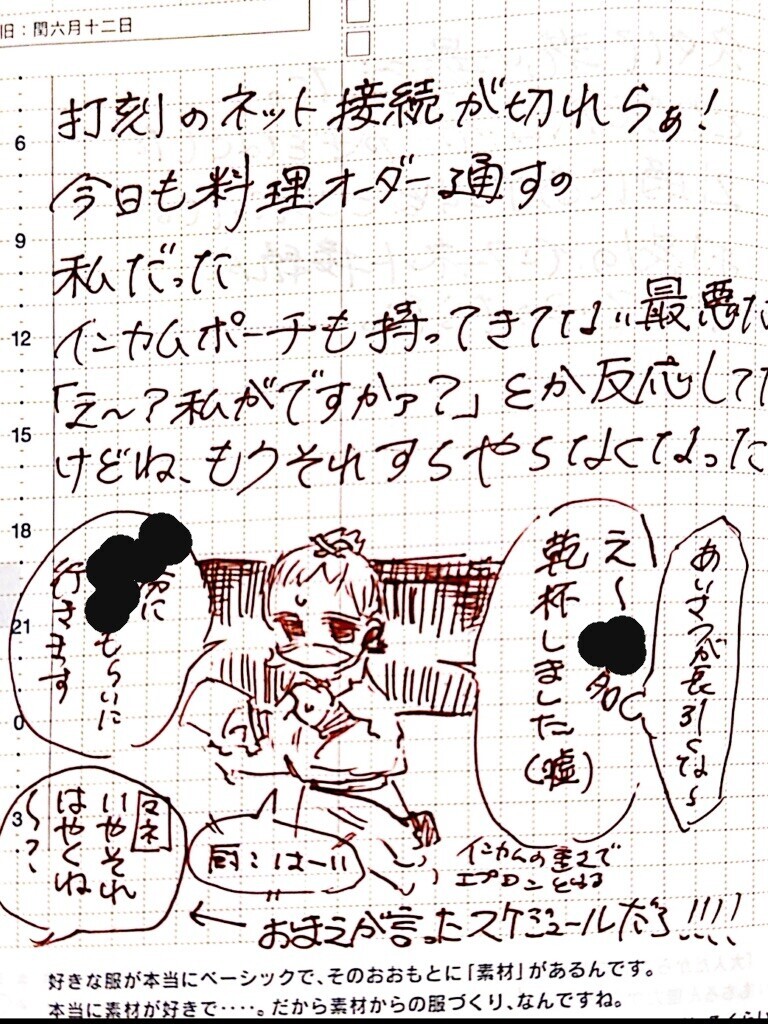 旧：閏六月十二日
打刻のネット接続が切れらぁ！
今日も料理オーダー通すの
私だった
インカムポーチも持ってきてない最悪だ
「え〜？私がですかァ？」とか反応してた
けどね、もうそれすらやらなくなった
6
9
12
15
18
21
0
3
あいさつが長引くな〜
え〜
卓〇〇
乾杯しました(嘘)
分に
もらいに
行きます
マネ
いやそれ
はやくね
〜？
厨：はーい
インカムの重さで
エプロンとれる
← おまえが言ったスケジュールだろ!!!!
好きな服が本当にベーシックで、そのおおもとに「素材」があるんです。
本当に素材が好きで‥‥。だから素材からの服づくり、なんですね。